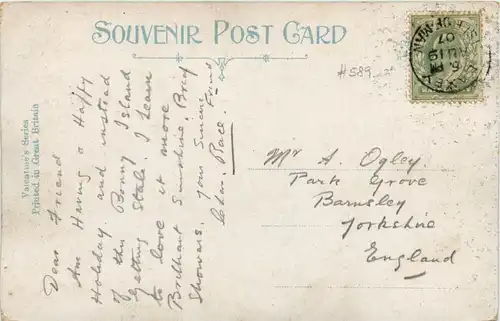 SOUVENIR POST CARD
#589
Valentine's Series
Printed in Great Britain
Dear Friend
Am Having a Happy
Holiday and instead
of this Bonny Island
getting Stale. I Learn
to love it more
Brilliant Sunshine. Brief
Showers. your Sincere Friend
Chas. Pace.
Mr A. Ogley
Park Grove
Barnsley
Yorkshire
England